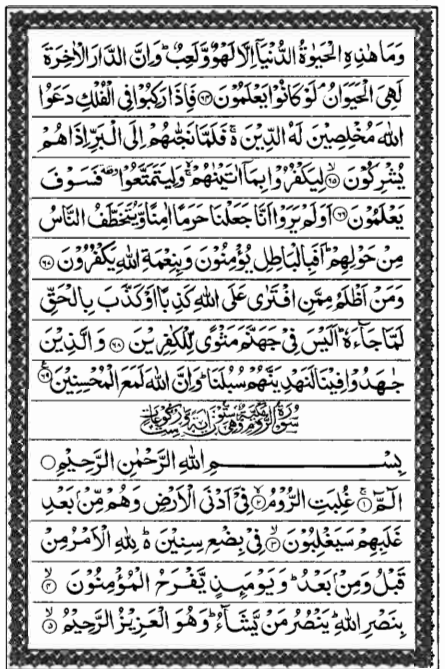 وَمَا هٰذِهِ الْحَيٰوةُ الدُّنْيَآ اِلَّا لَهْوٌ وَّلَعِبٌ ؕ وَاِنَّ الدَّارَ الْاٰخِرَةَ
لَهِيَ الْحَيَوَانُ ۘ لَوْ كَانُوْا يَعْلَمُوْنَ ﴿۶۴﴾ فَاِذَا رَكِبُوْا فِي الْفُلْكِ دَعَوُا
اللّٰهَ مُخْلِصِيْنَ لَهُ الدِّيْنَ ۚ فَلَمَّا نَجّٰىهُمْ اِلَى الْبَرِّ اِذَا هُمْ
يُشْرِكُوْنَ ۙ﴿۶۵﴾ لِيَكْفُرُوْا بِمَآ اٰتَيْنٰهُمْ ۙ وَلِيَتَمَتَّعُوْا ۥ فَسَوْفَ
يَعْلَمُوْنَ ﴿۶۶﴾ اَوَلَمْ يَرَوْا اَنَّا جَعَلْنَا حَرَمًا اٰمِنًا وَّيُتَخَطَّفُ النَّاسُ
مِنْ حَوْلِهِمْ ؕ اَفَبِالْبَاطِلِ يُؤْمِنُوْنَ وَبِنِعْمَةِ اللّٰهِ يَكْفُرُوْنَ ﴿۶۷﴾
وَمَنْ اَظْلَمُ مِمَّنِ افْتَرٰى عَلَى اللّٰهِ كَذِبًا اَوْ كَذَّبَ بِالْحَقِّ
لَمَّا جَآءَهٗ ؕ اَلَيْسَ فِيْ جَهَنَّمَ مَثْوًى لِّلْكٰفِرِيْنَ ﴿۶۸﴾ وَالَّذِيْنَ
جٰهَدُوْا فِيْنَا لَنَهْدِيَنَّهُمْ سُبُلَنَا ؕ وَاِنَّ اللّٰهَ لَمَعَ الْمُحْسِنِيْنَ ﴿۶۹﴾
سُوْرَةُ الرُّوْمِ
بِسْمِ اللّٰهِ الرَّحْمٰنِ الرَّحِيْمِ
الٓمّٓ ۚ﴿۱﴾ غُلِبَتِ الرُّوْمُ ۙ﴿۲﴾ فِيْٓ اَدْنَى الْاَرْضِ وَهُمْ مِّنْۢ بَعْدِ
غَلَبِهِمْ سَيَغْلِبُوْنَ ۙ﴿۳﴾ فِيْ بِضْعِ سِنِيْنَ ؕ لِلّٰهِ الْاَمْرُ مِنْ
قَبْلُ وَمِنْۢ بَعْدُ ؕ وَيَوْمَئِذٍ يَّفْرَحُ الْمُؤْمِنُوْنَ ۙ﴿۴﴾
بِنَصْرِ اللّٰهِ ؕ يَنْصُرُ مَنْ يَّشَآءُ ؕ وَهُوَ الْعَزِيْزُ الرَّحِيْمُ ۙ﴿۵﴾